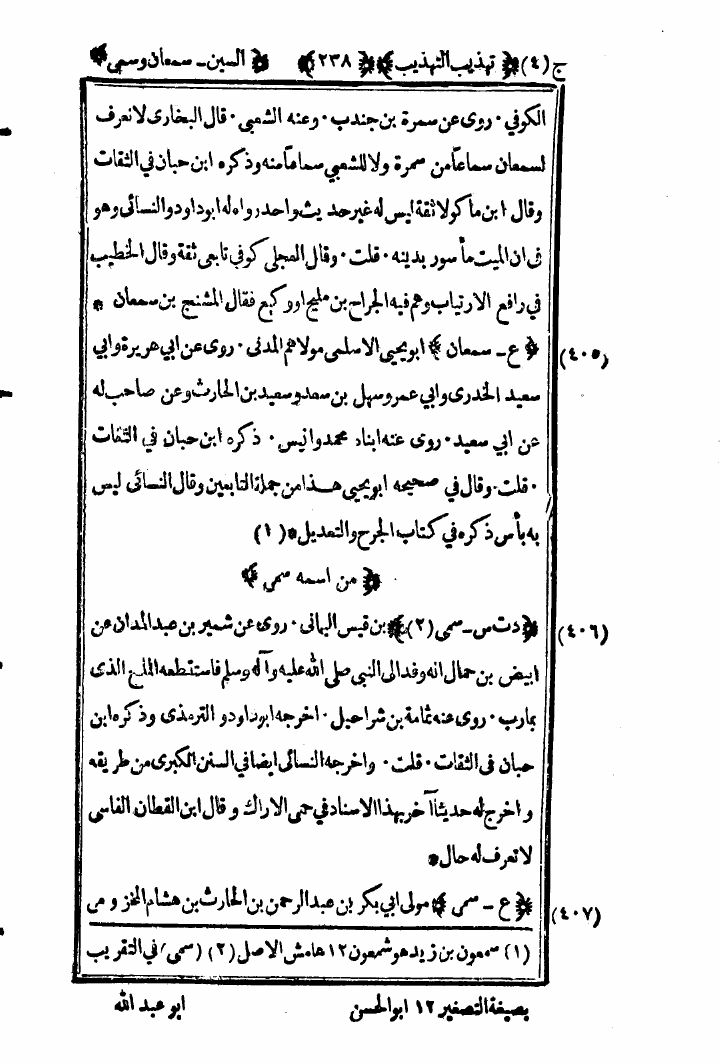 ج (٤) ﴿ تهذيب التهذيب ﴾ ﴿ ٢٣٨ ﴾ ﴿ السين ـ سمعان وسمي ﴾
الكوفي ٠ روى عن سمرة بن جندب ٠ وعنه الشعبي ٠ قال البخارى لا نعرف
لسمعان سماعاً من سمرة ولا للشعبي سماعاً منه وذكره ابن حبان في الثقات
وقال ابن ماكولا ثقة ليس له غير حديث واحد رواه له ابوداود والنسائى وهو
فى ان الميت مأسور بدينه ٠ قلت ٠ وقال العجلى كوفي تابعى ثقة وقال الخطيب
في رافع الارتياب وهم فيه الجراح بن مليح او وكيع فقال المشنج بن سمعان *
(٤٠٥) ﴿ ع ـ سمعان ﴾ ابويحيى الاسلمى مولاهم المدنى ٠ روى عن ابي هريرة وابي
سعيد الخدرى وابي عمر وسهل بن سعد وسعيد بن الحارث وعن صاحب له
عن ابي سعيد ٠ روى عنه ابناه محمد وانيس ٠ ذكره ابن حبان في الثقات
٠ قلت ٠ وقال في صحيحه ابويحيى هذا من جملة التابعين وقال النسائى ليس
به بأس ذكره في كتاب الجرح والتعديل * (١)
﴿ من اسمه سمي ﴾
(٤٠٦) ﴿ د ت س ـ سمى (٢) ﴾ بن قيس اليمانى ٠ روى عن شمير بن عبد المدان عن
ابيض بن حمال انه وفد الى النبي صلى الله عليه وآله وسلم فاستقطعه الملح الذى
بمارب ٠ روى عنه ثمامة بن شراحيل ٠ اخرجه ابوداود والترمذى وذكره ابن
حبان فى الثقات ٠ قلت ٠ واخرجه النسائى ايضا في السنن الكبرى من طريقه
واخرج له حديثاً آخر بهذا الاسناد في حمى الاراك وقال ابن القطان الفاسى
لا تعرف له حال *
(٤٠٧) ﴿ ع ـ سمى ﴾ مولى ابي بكر بن عبد الرحمن بن الحارث بن هشام المخزومى
(١) سمعون بن زيد هو شمعون ١٢ هامش الاصل (٢) (سمى) في التقريب
بصيغة التصغير ١٢ ابوالحسن ابو عبد الله